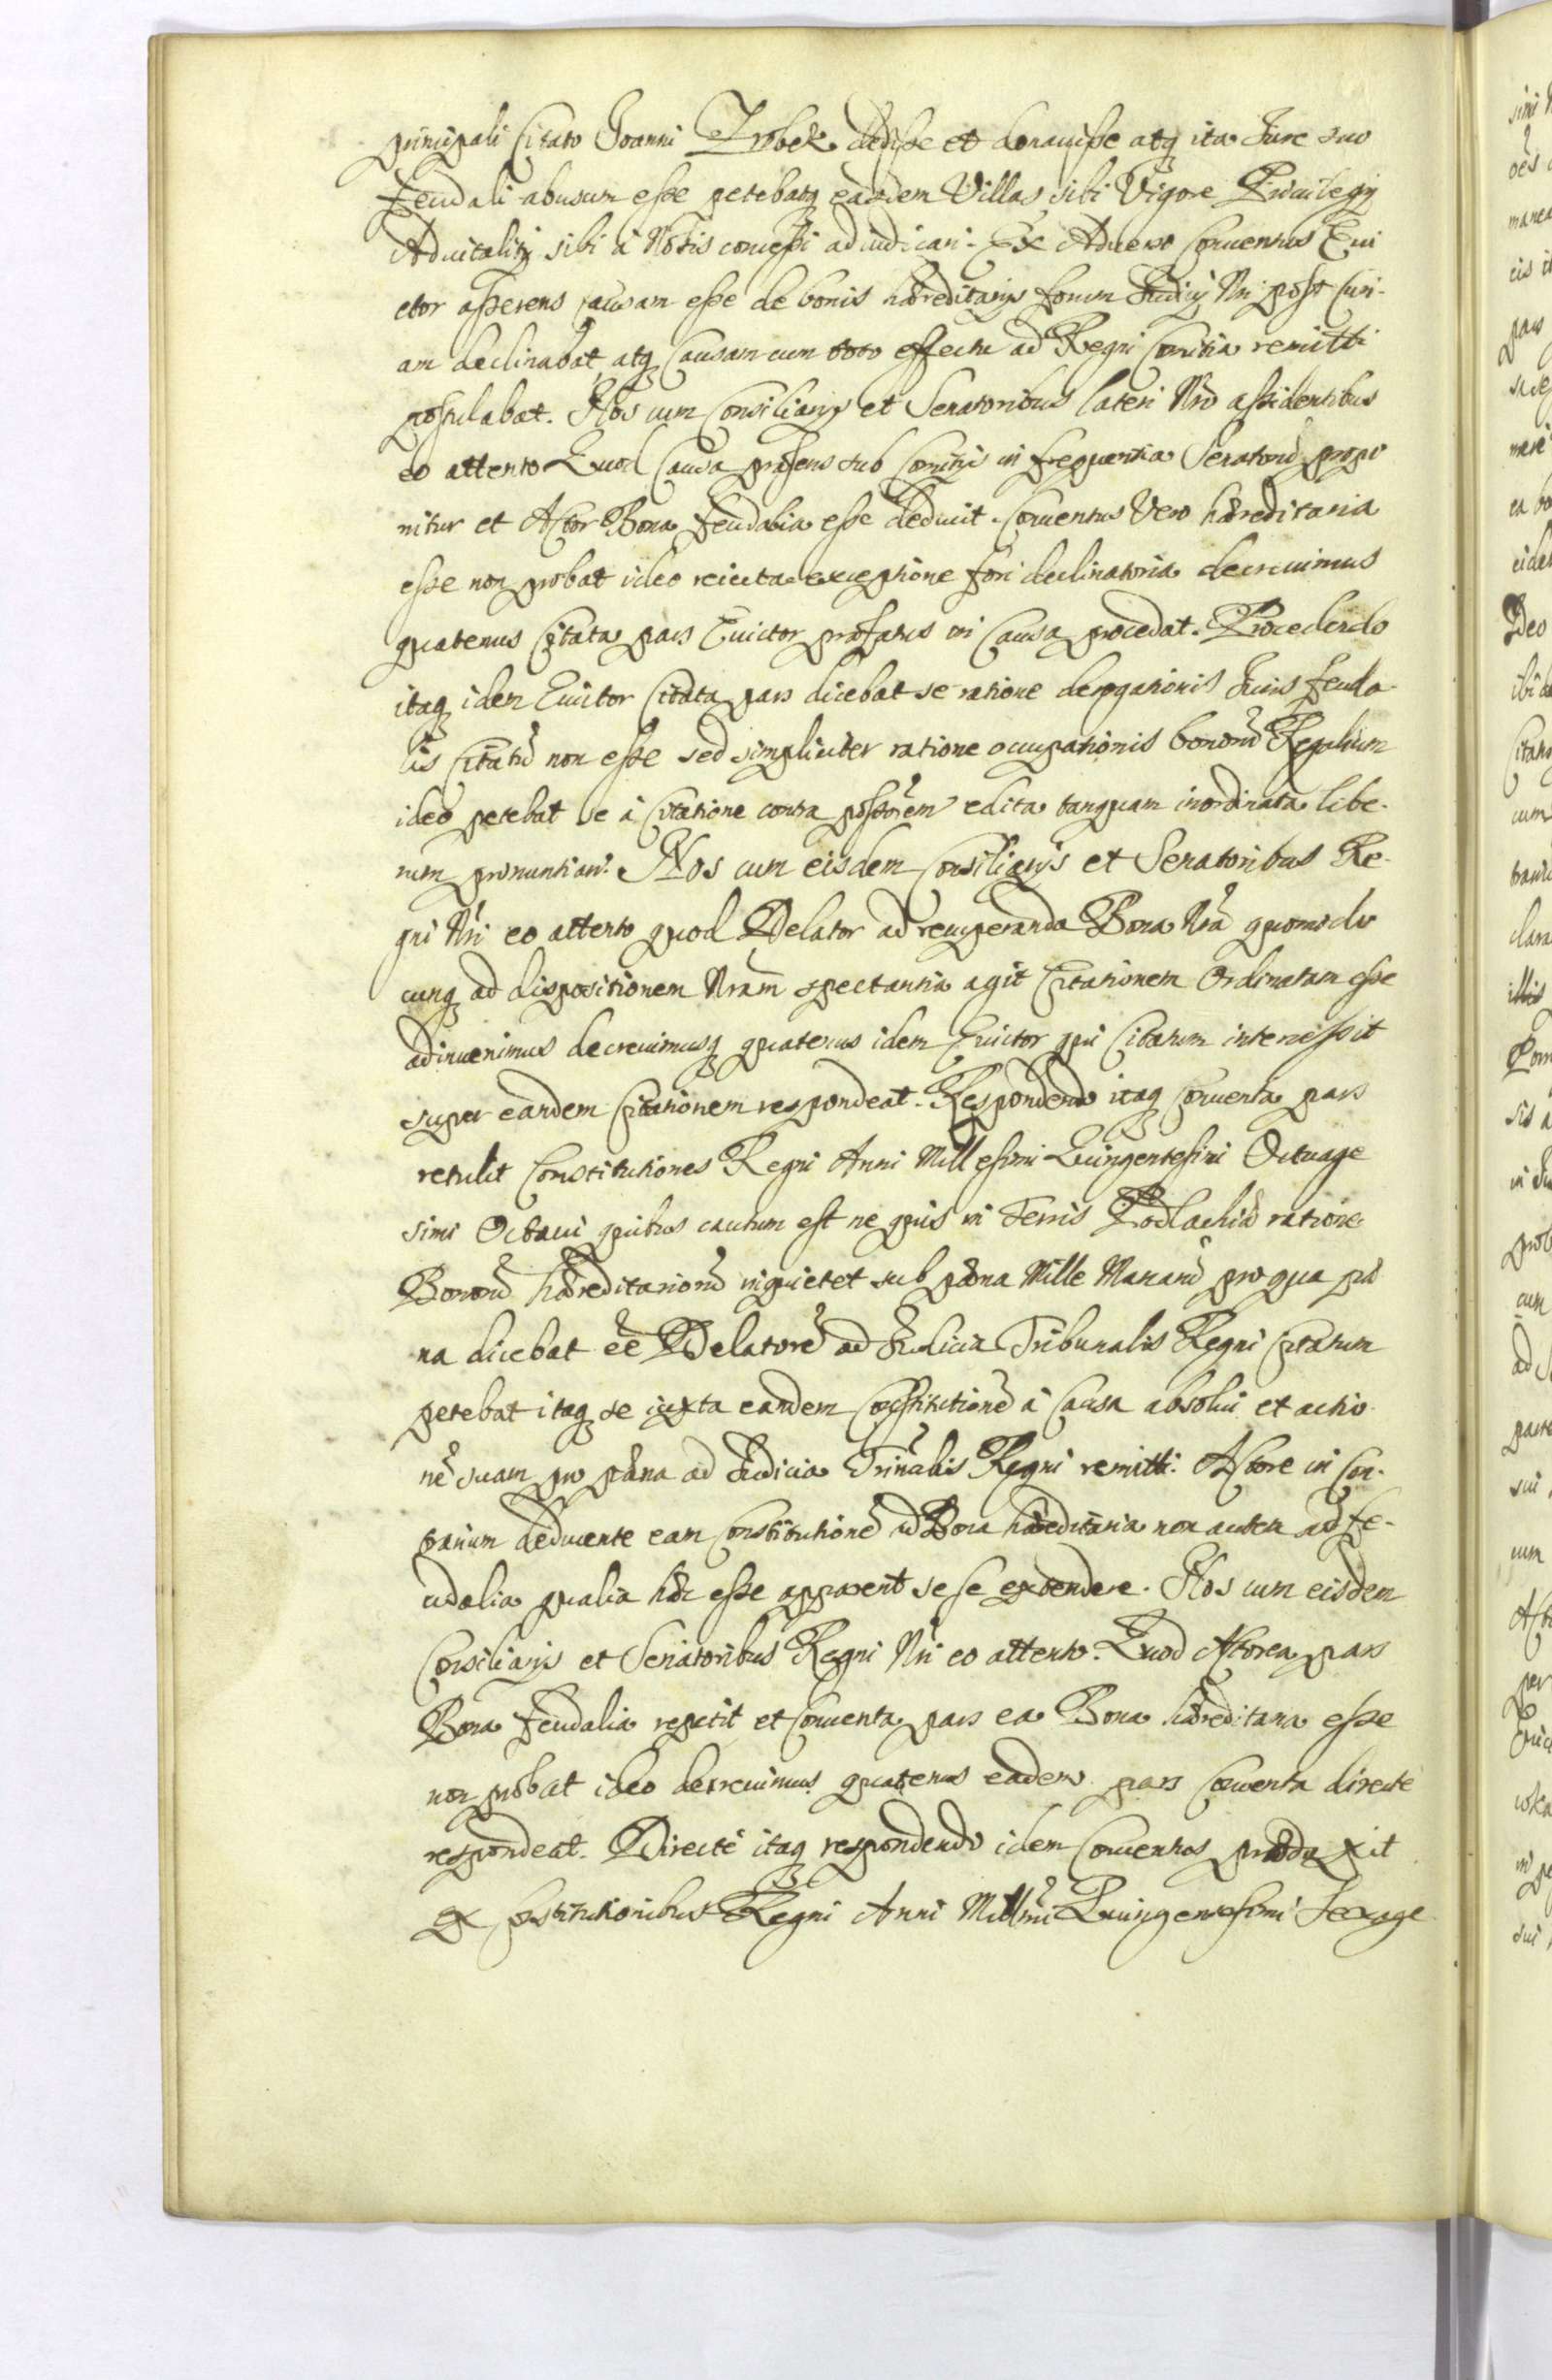 principali Citato Joanni Zrobek dedisse et donauisse atq ita Jure suo
feudali abusum esse petebatq easdem Villas sibi Vigore Priuilegij
Aduitalitij sibi à Nobis concessi adiudicari. Ex Aduerso Conuentus Eui
ctor asserens causam esse de bonis hæreditarijs forum Judicij Nri post Curi-
am declinabat atq Causam cum toto effectu ad Regni Comitia remitti
postulabat. Nos cum Consiliarijs et Senatoribus lateri Nro assidentibus
eo attento Quod Causa præsens sub Comitijs in frequentia Senatorũ propo
nitur et Actor Bona feudalia esse deducit. Conuentus Vero hæreditaria
esse non probat ideo reiecta exceptione fori declinatoria decreuimus
quatenus Citata pars Euictor præfatus in Causa procedat. Procedendo
itaq idem Euictor Citata pars dicebat se ratione derogationis Juris feuda-
lis Citatũ non esse sed simpliciter ratione occupationis bonorũ Regalium
ideo petebat se à Citatione contra possorem edita tanquam inordinata libe-
rum pronuntiari. Nos cum eisdem Consiliarijs et Senatoribus Re-
gni Nri eo attento quod Delator ad recuperanda Bona Nra quomodo
cunq ad dispositionem Nram spectantia agit Citationem Ordinatam esse
adinuenimus decreuimusq quatenus idem Euictor qui Citatum intercessit
super eandem Citationem respondeat. Respondendo itaq Conuenta pars
retulit Constitutiones Regni Anni Millesimi Quingentesimi Octuage
simi Octaui quibus cautum est ne quis in Terris Podlachiæ ratione
Bonorũ hæreditariorũ inquietet sub pæna Mille Marcarũ pro qua pæ
na dicebat eẽ Delatorẽ ad Judicia Tribunalis Regni Citatum
petebat itaq se iuxta eandem Constitutionẽ à Causa absolui et actio
nẽ suam pro pæna ad Judicia Trinalis Regni remitti. Actore in Con-
trarium deducente eam Constitutionẽ ad Bona hæreditaria non autem ad fe-
udalia qualia hæc esse apparent sese extendere. Nos cum eisdem
Consiliarijs et Senatoribus Regni Nri eo attento. Quod Actorea pars
Bona feudalia repetit et Conuenta pars ea Bona hæreditaria esse
non probat ideo decreuimus quatenus eadem pars Conuenta directè
respondeat. Directè itaq respondendo idem Conuentus produxit
ex Constitutionibus Regni Anni Millmi Quingentesimi Sexage